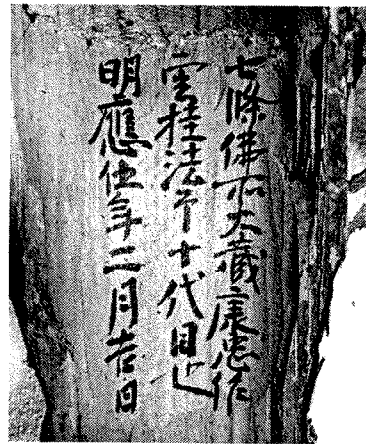 七條佛所大藏康忠作
雲桂法印十代目也
明應伍年二月吉日